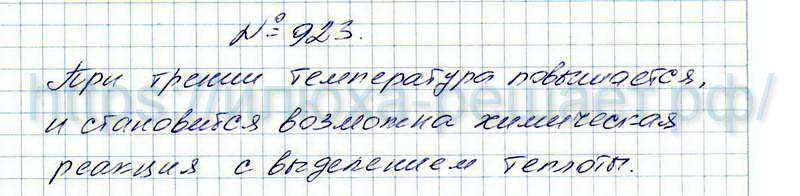 № 923.
При трении температура повышается,
и становится возможна химическая
реакция с выделением теплоты.